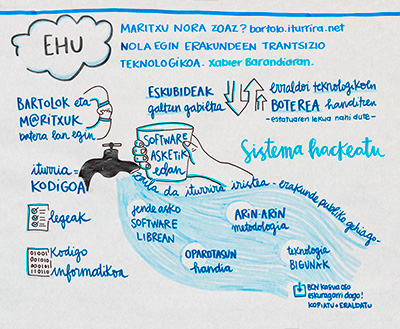 EHU
MARITXU NORA ZOAZ? bartolo.iturrira.net
NOLA EGIN ERAKUNDEEN TRANTSIZIO
TEKNOLOGIKOA. Xabier Barandiaran.
BARTOLOK eta
M@RITXUK
batera lan egin
ESKUBIDEAK
galtzen gabiltza
erraldoi teknologikoen
BOTEREA handitzen
-estatuaren lekua nahi dute-
SOFTWARE
ASKETIK
edan
Sistema hackeatu
iturria-
KODIGOA
zaila da iturrira iristea - erakunde publiko gehiago-
legeak
Kodigo
informatikoa
jende asko
SOFTWARE
LIBREAN
ARIN-ARIN
metodologia
OPAROTASUN
handia
teknologia
BIGUNAK
BCN kasua oso
eskuragarri dago!
KOPIATU + ERALDATU